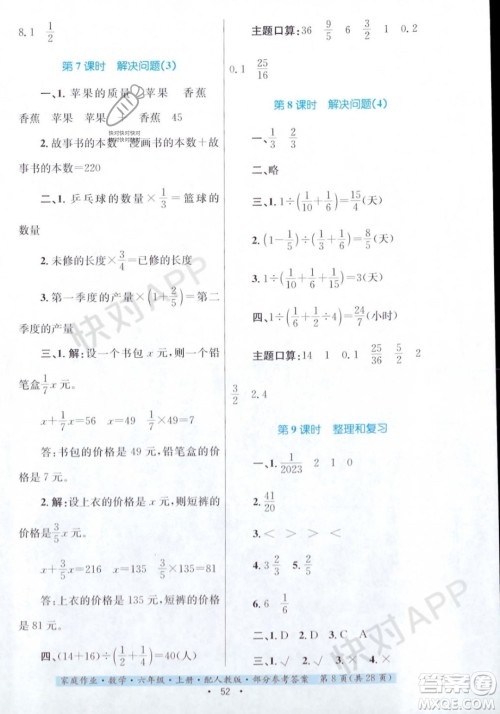 8.1 1/2
第7课时 解决问题(3)
一、1. 苹果的质量 苹果 香蕉
香蕉 苹果 苹果 香蕉 45
2. 故事书的本数 漫画书的本数+故
事书的本数=220
二、1. 乒乓球的数量×1/3=篮球的
数量
2. 未修的长度×3/4=已修的长度
3. 第一季度的产量×(1+2/5)=第二
季度的产量
三、1. 解:设一个书包x元,则一个铅
笔盒1/7x元。
x+1/7x=56 x=49 1/7x=7
答:书包的价格是49元,铅笔盒的
价格是7元。
2. 解:设上衣的价格是x元,则短裤的
价格是3/5x元。
x+3/5x=216 x=135 3/5×135=81
答:上衣的价格是135元,短裤的价格
是81元。
四、(14+16)÷(1/2+1/4)=40(人)
主题口算:36 9/8 5/9 5/2 9
0.1 25/16
第8课时 解决问题(4)
一、1/3 2/3
二、略
三、1. 1÷(1/10+1/6)=15/4(天)
2. (1-1/5)÷(1/3+1/6)=8/5(天)
3. 1÷(1/10+1/30)=15/2(天)
四、1÷(1/6+1/8)=24/7(小时)
主题口算:14 1 0.1 25/36 5/2 2
3/2 2.4
第9课时 整理和复习
一、1. 1/2023 2 1 0
2. 41/20
3. < > < >
二、✓ ✓ ✓
三、2 3 1
四、9 3/2 9/20
6 1/12 2/3
家庭作业·数学·六年级·上册·配人教版·部分参考答案 第8页(共28页)
· 52 ·
快对
快对快对
快对快对
快对APP
快对APP